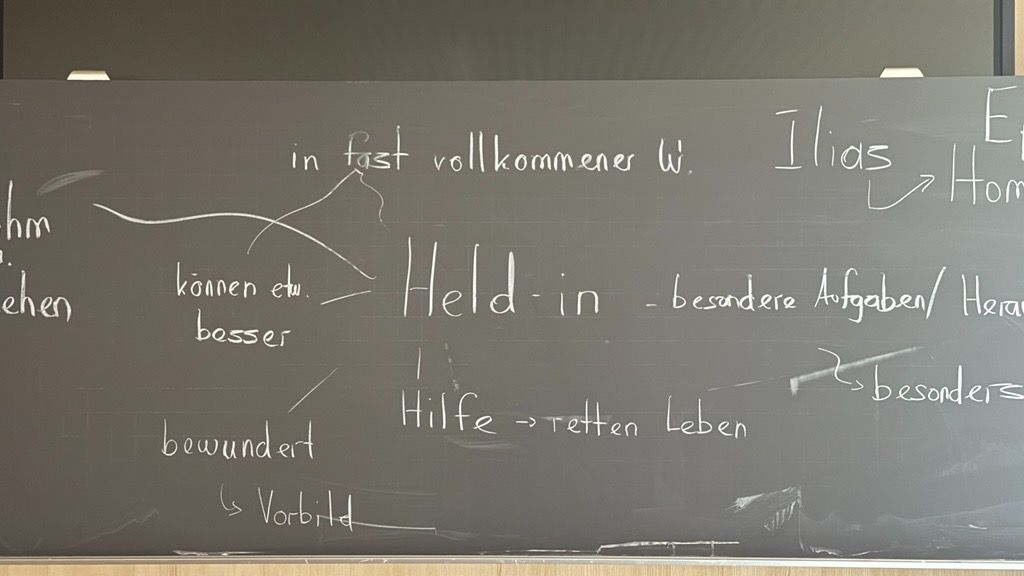 in fast vollkommener W.
Ilias
können etw.
besser
Held-in
- besondere Aufgaben/
besonders
Hilfe → retten Leben
bewundert
↳ Vorbild